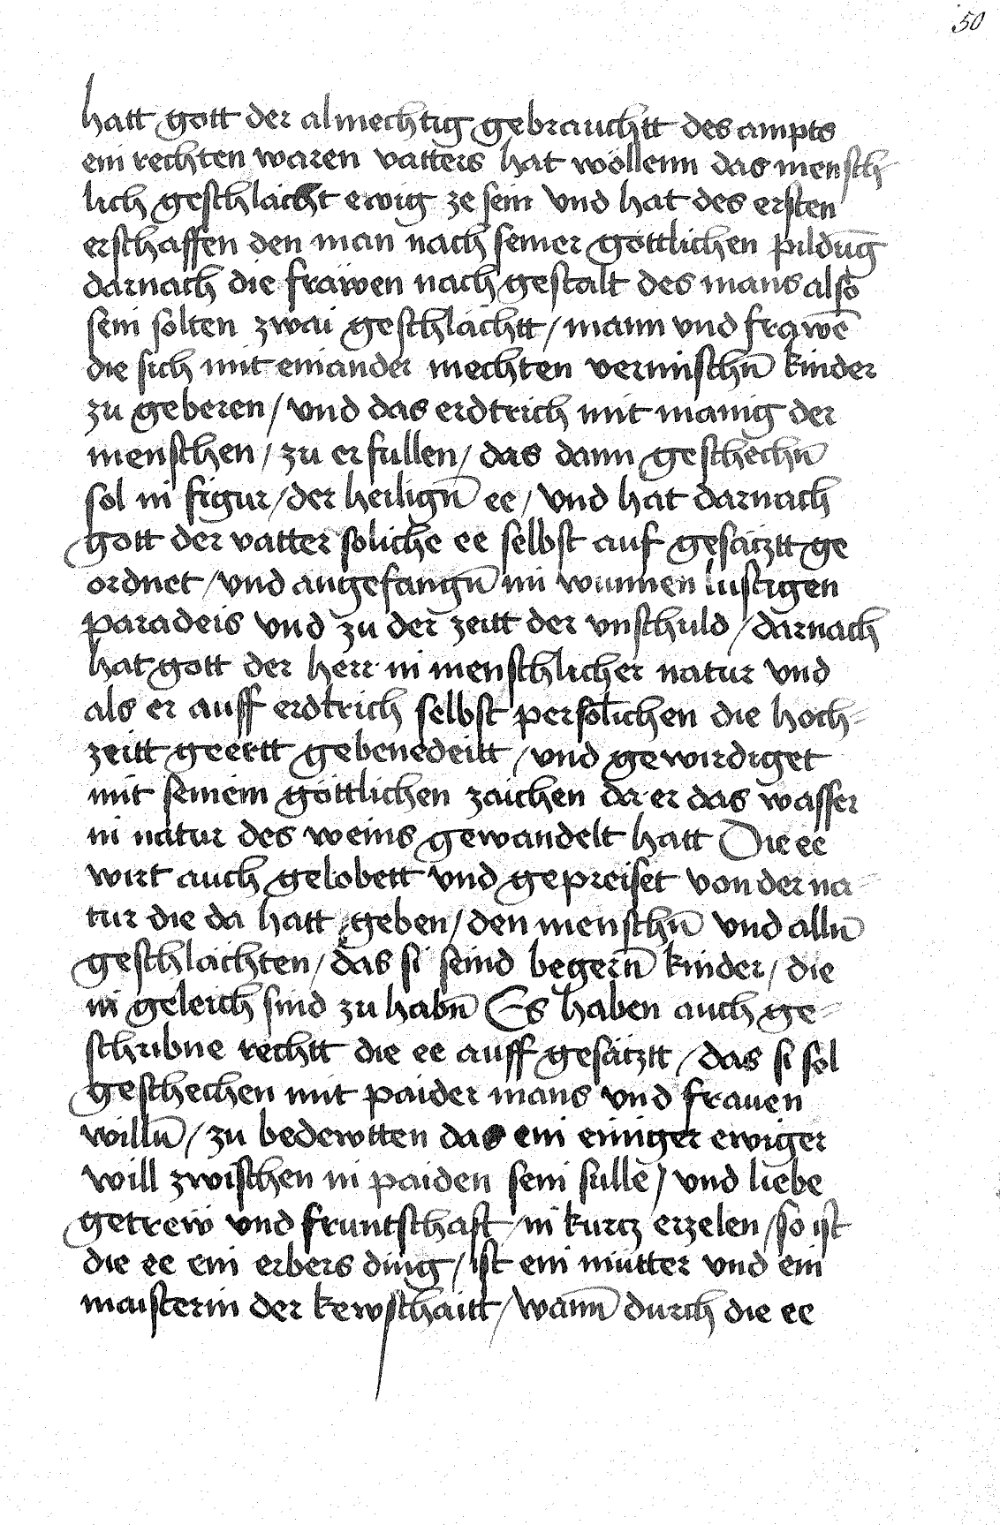 50
hatt gott der almechtig gebrauchtt des ampts
ein rechten waren vatters hat wöllenn das mensch
lich geschlächt ewig ze sein vnd hat des ersten
erschaffen den man nach seiner göttlichen pildūg
darnach die fräwen nach gestalt des mans also
sein solten zwai geschlächtt / mann vnd frawē
die sich mit einander mechten vermischn̄ kinder
zu geberen / vnd das erdtrich mit manig der
menschen / zu erfullen / das dann geschechn̄
sol in figur / der heilign̄ ee / vnd hat darnach
gott der vatter soliche ee selbst auf gesätztt ge
ordnet / vnd angefangn̄ im wunnen lustigen
paradeis vnd zu der zeitt der vnschuld / darnach
hat gott der herr in menschlicher natur vnd
als er auff erdtrich selbst persolichen die hoch=
zeitt geertt gebenedeitt / vnd gewirdiget
mit seinem göttlichen zaichen da er das wasser
in natur des weins gewandelt hatt Die ee
wirt auch gelobett vnd gepreiset von der na=
tur die da hatt geben / den menschn̄ vnd alln̄
geschlächten / das si seind begern̄ kinder / die
in geleich sind zu habn̄ Es haben auch ge=
schribne rechtt die ee auff gesätztt / das si sol
geschechen mit paider mans vnd frauen
willn̄ / zu bedewtten das ein einiger ewiger
will zwischen in paiden sein sullē / vnd liebe
getrew vnd fruntschaft / in kurcz erzelen / so ist
die ee ein erbers ding / ist ein mutter vnd ein
maisterin der kewschaitt / wann̄ durch die ee